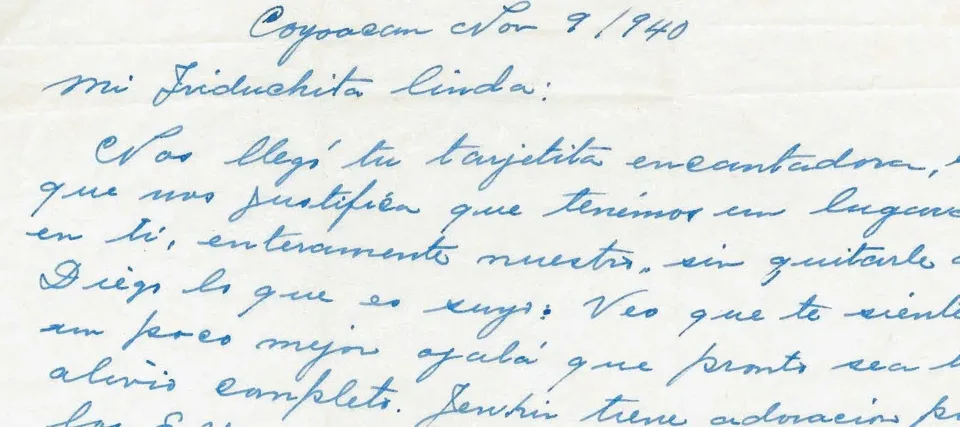 Coyoacan Nov 9/1940
Mi Friduchita linda:
Nos llegó tu tarjetita encantadora,
que nos justifica que tenémos un lugar
en tí, enteramente nuestro, sin quitarle
Diégo lo que es suyo: Veo que te siente
un poco mejor ojalá que pronto sea
alivio completo. tiene adoración
los